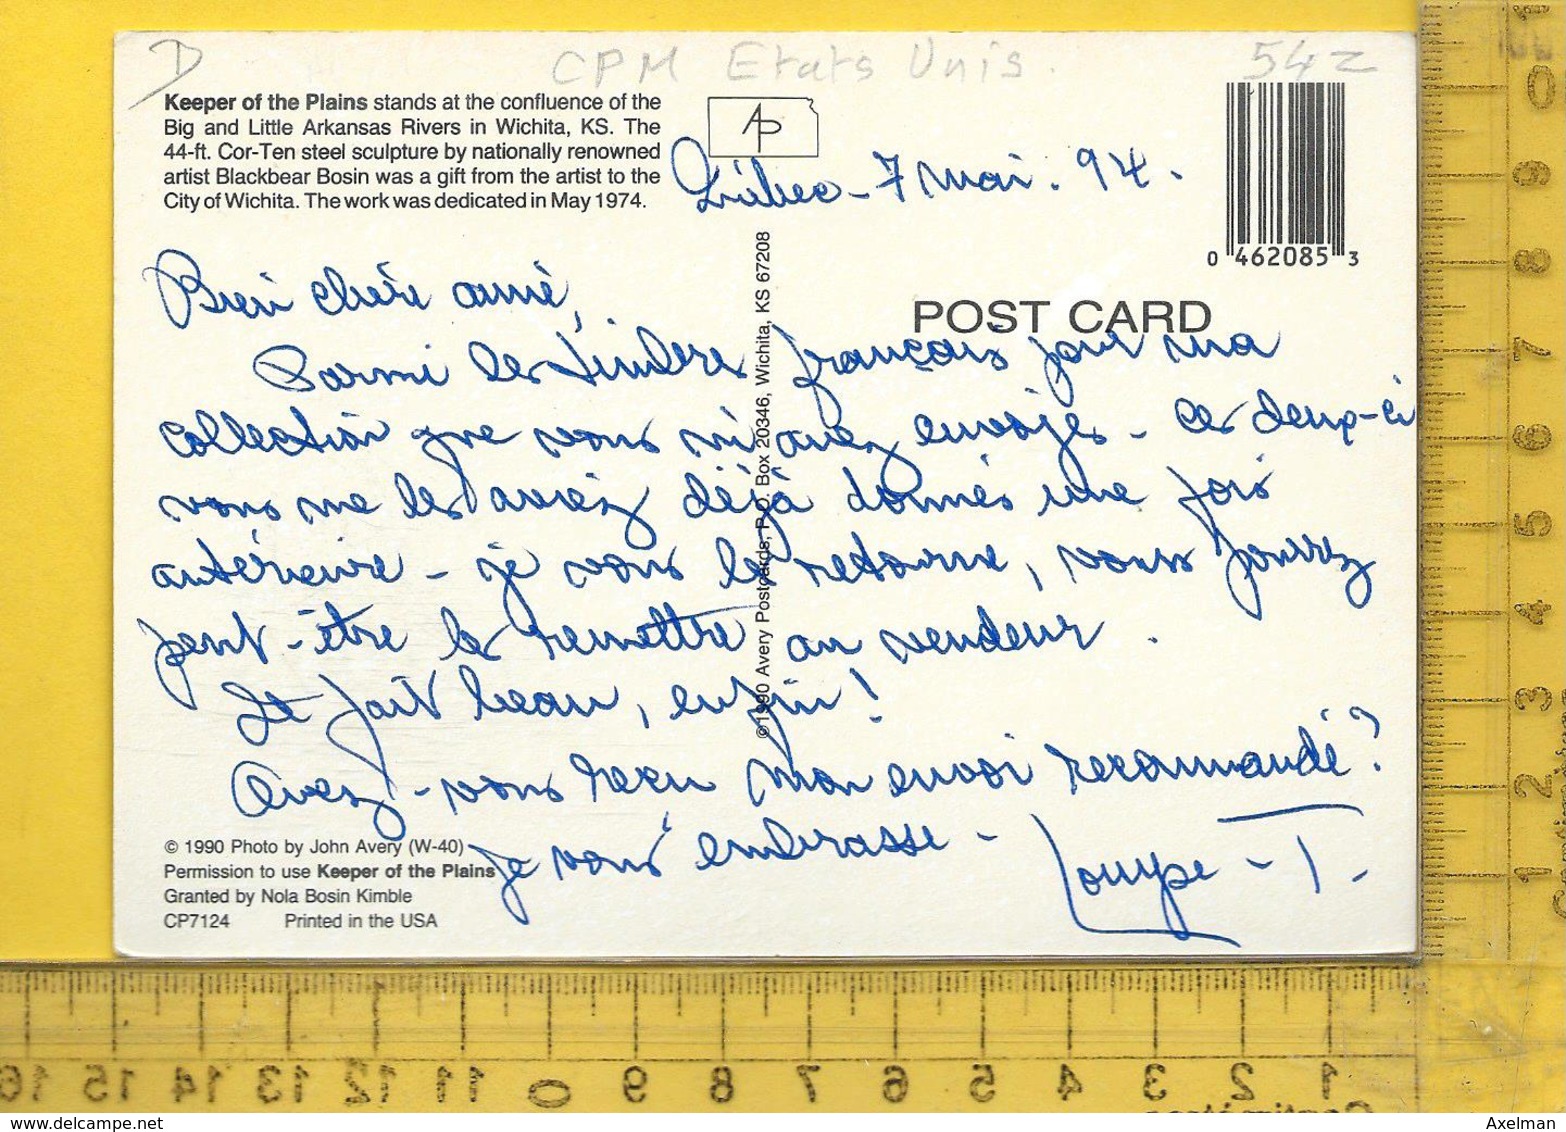 D
CPM Etats Unis.
542
Keeper of the Plains stands at the confluence of the
Big and Little Arkansas Rivers in Wichita, KS. The
44-ft. Cor-Ten steel sculpture by nationally renowned
artist Blackbear Bosin was a gift from the artist to the
City of Wichita. The work was dedicated in May 1974.
AP
Québec - 7 mai. 94.
0 462085 3
POST CARD
Bien chère amie,
Parmi les timbres français pour ma
collection que vous m'avez envoyés - ces deux-ci
vous me les aviez déjà donnés une fois
antérieure - je vous les retourne, vous pourrez
peut-être les remettre au vendeur.
Il fait beau, enfin!
Avez-vous reçu mon envoi recommandé?
Je vous embrasse -
©1990 Avery Postcards, P.O. Box 20346, Wichita, KS 67208
© 1990 Photo by John Avery (W-40)
Permission to use Keeper of the Plains
Granted by Nola Bosin Kimble
CP7124 Printed in the USA
0 9 8 7 6 5 4 3 2 1
16 15 14 13 12 11 0 9 8 7 6 5 4 3 2 1
www.delcampe.net
Axelman